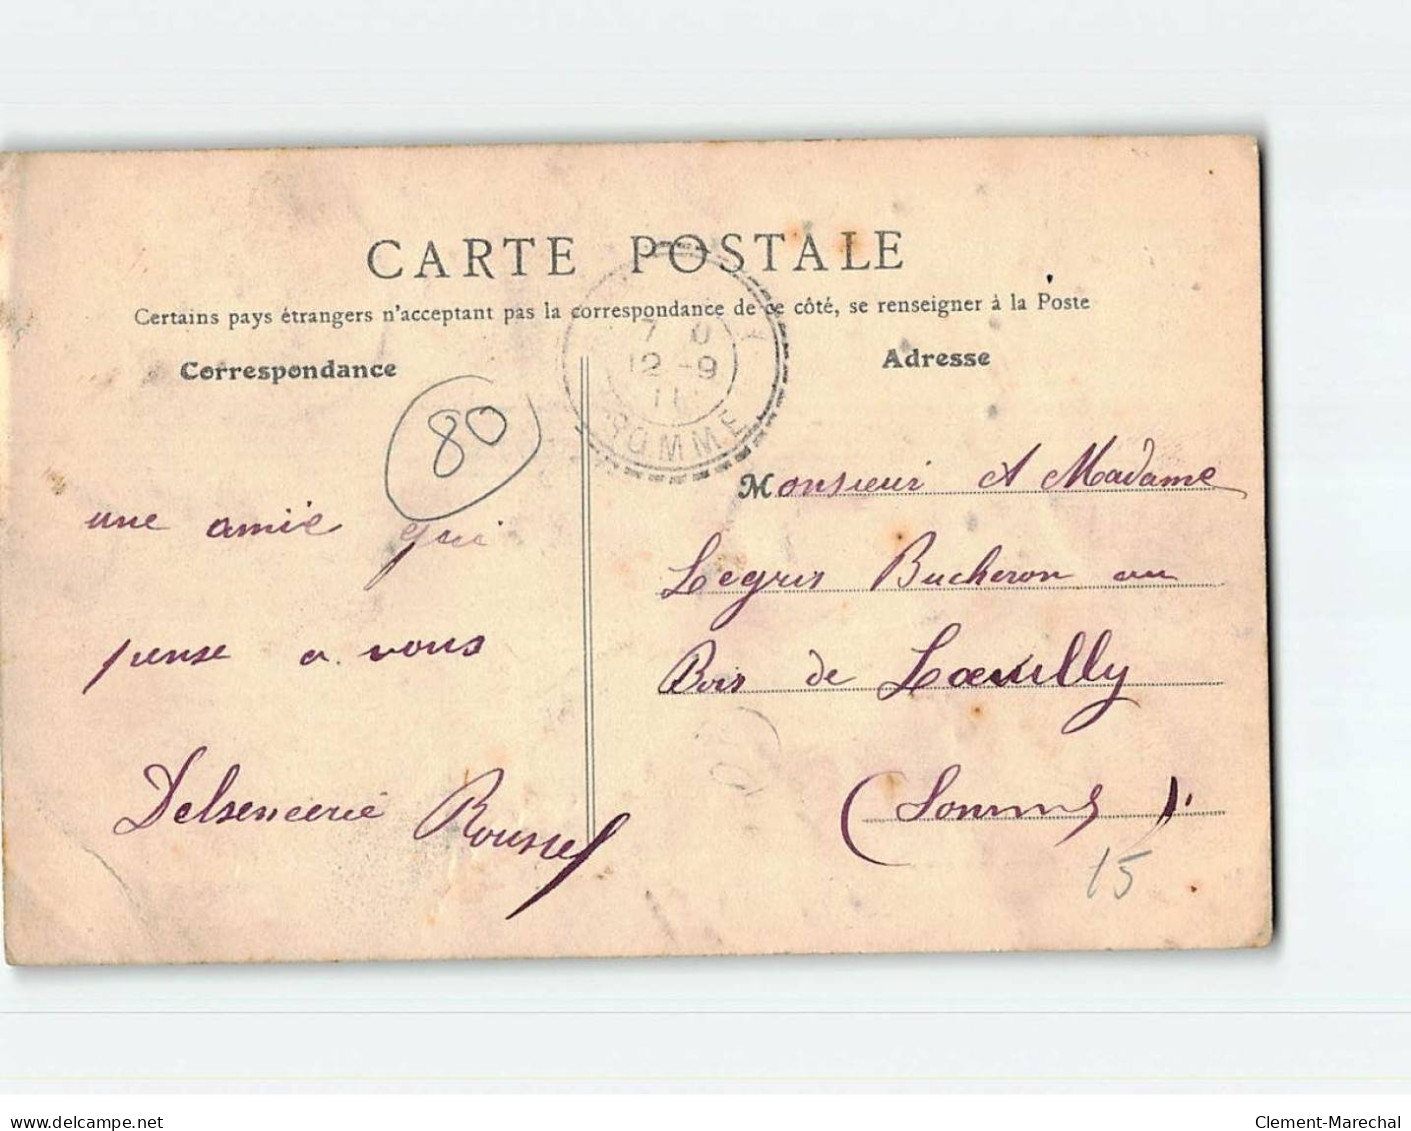 CARTE POSTALE
Certains pays étrangers n'acceptant pas la correspondance de ce côté, se renseigner à la Poste
Correspondance
Adresse
7 0
12 -9
11
SOMME
80
une amie qui
pense a vous
Delsencerie Roussel
Monsieur et Madame
Legris Bucheron au
Bois de Lœuilly
(Somme)
15
delcampe.net
Clement-Marechal